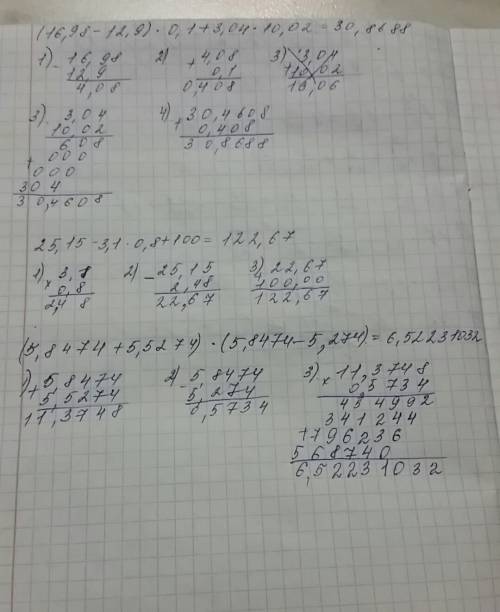 (16,98 - 12,9) · 0,1 + 3,04 · 10,02 = 30,8688
1) - 16,98 2) + 4,08 3) 3,04
12,9 0,1 + 10,02
4,08 0,408 13,06
3) · 3,04 4) + 30,4608
10,02 0,408
608 30,8688
+ 000
000
304
30,4608
25,15 - 3,1 · 0,8 + 100 = 122,67
1) × 3,1 2) - 25,15 3) + 22,67
0,8 2,48 100,00
2,48 22,67 122,67
(5,8474 + 5,5274) · (5,8474 - 5,274) = 6,52231032
1) + 5,8474 2) - 5,8474 3) × 11,3748
5,5274 5,274 0,5734
11,3748 0,5734 454992
341244
796236
568740
6,52231032